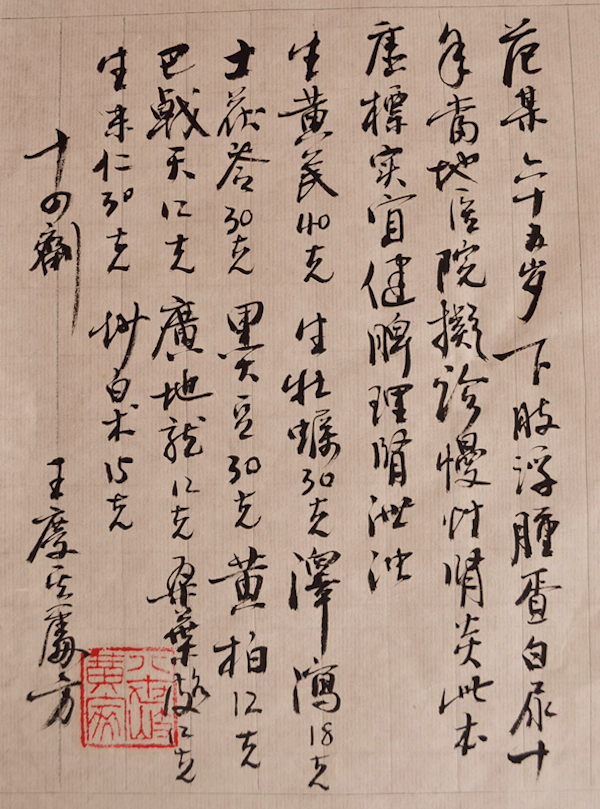 范某六十五岁 下肢浮腫蛋白尿十
年當地医院擬診慢性腎炎此本
虚標实宜健脾理腎泄浊
生黄芪40克 生牡蛎30克 澤瀉18克
土茯苓30克 黑大豆30克 黄柏12克
巴戟天12克 廣地龍12克 桑葉 12克
生米仁30克 炒白术15克
十四劑
王慶其處方